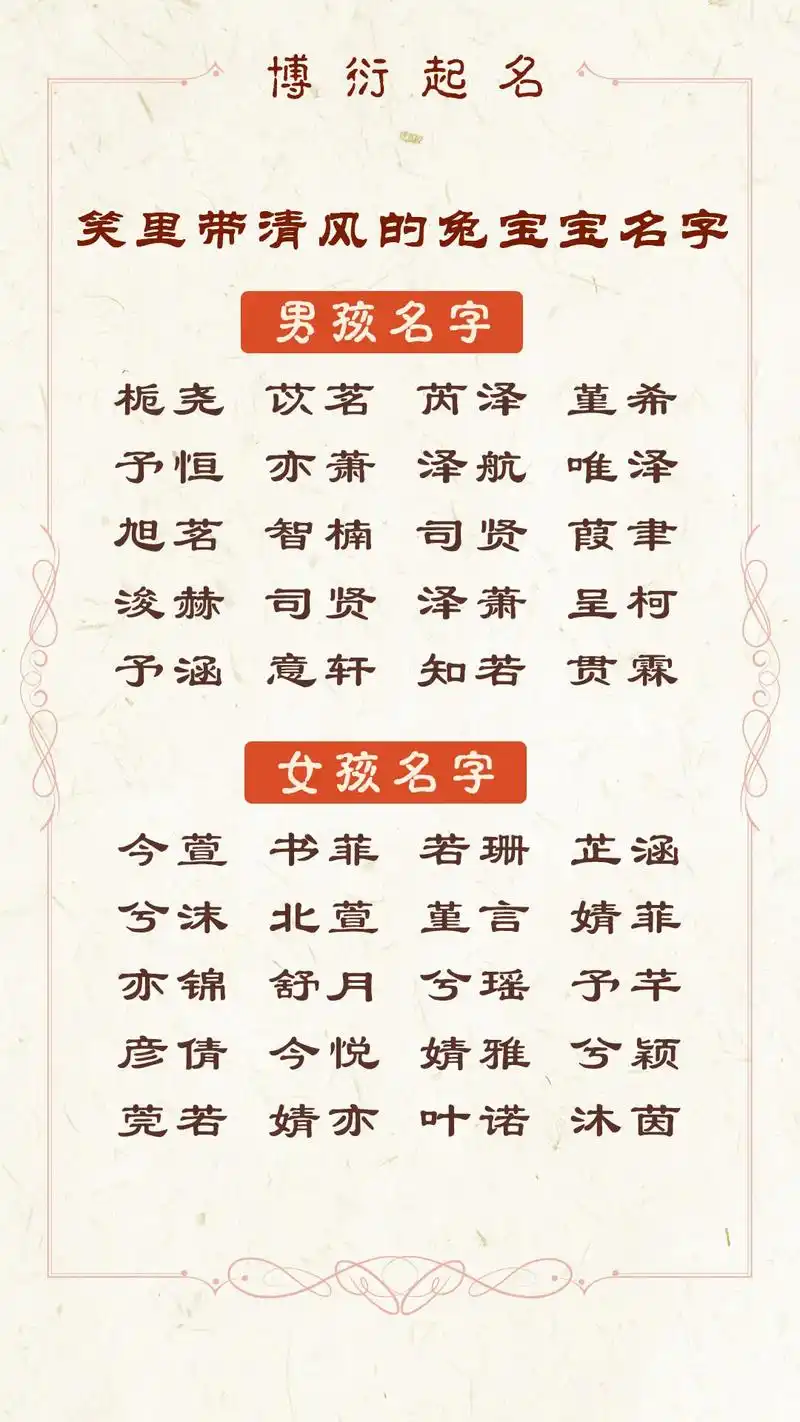 博衍起名
笑里带清风的兔宝宝名字
男孩名字
栀尧 苡茗 芮泽 堇希
予恒 亦萧 泽航 唯泽
旭茗 智楠 司贤 葭聿
浚赫 司贤 泽萧 呈柯
予涵 意轩 知若 贯霖
女孩名字
今萱 书菲 若珊 芷涵
兮沫 北萱 堇言 婧菲
亦锦 舒月 兮瑶 予芊
彦倩 今悦 婧雅 兮颖
莞若 婧亦 叶诺 沐茵